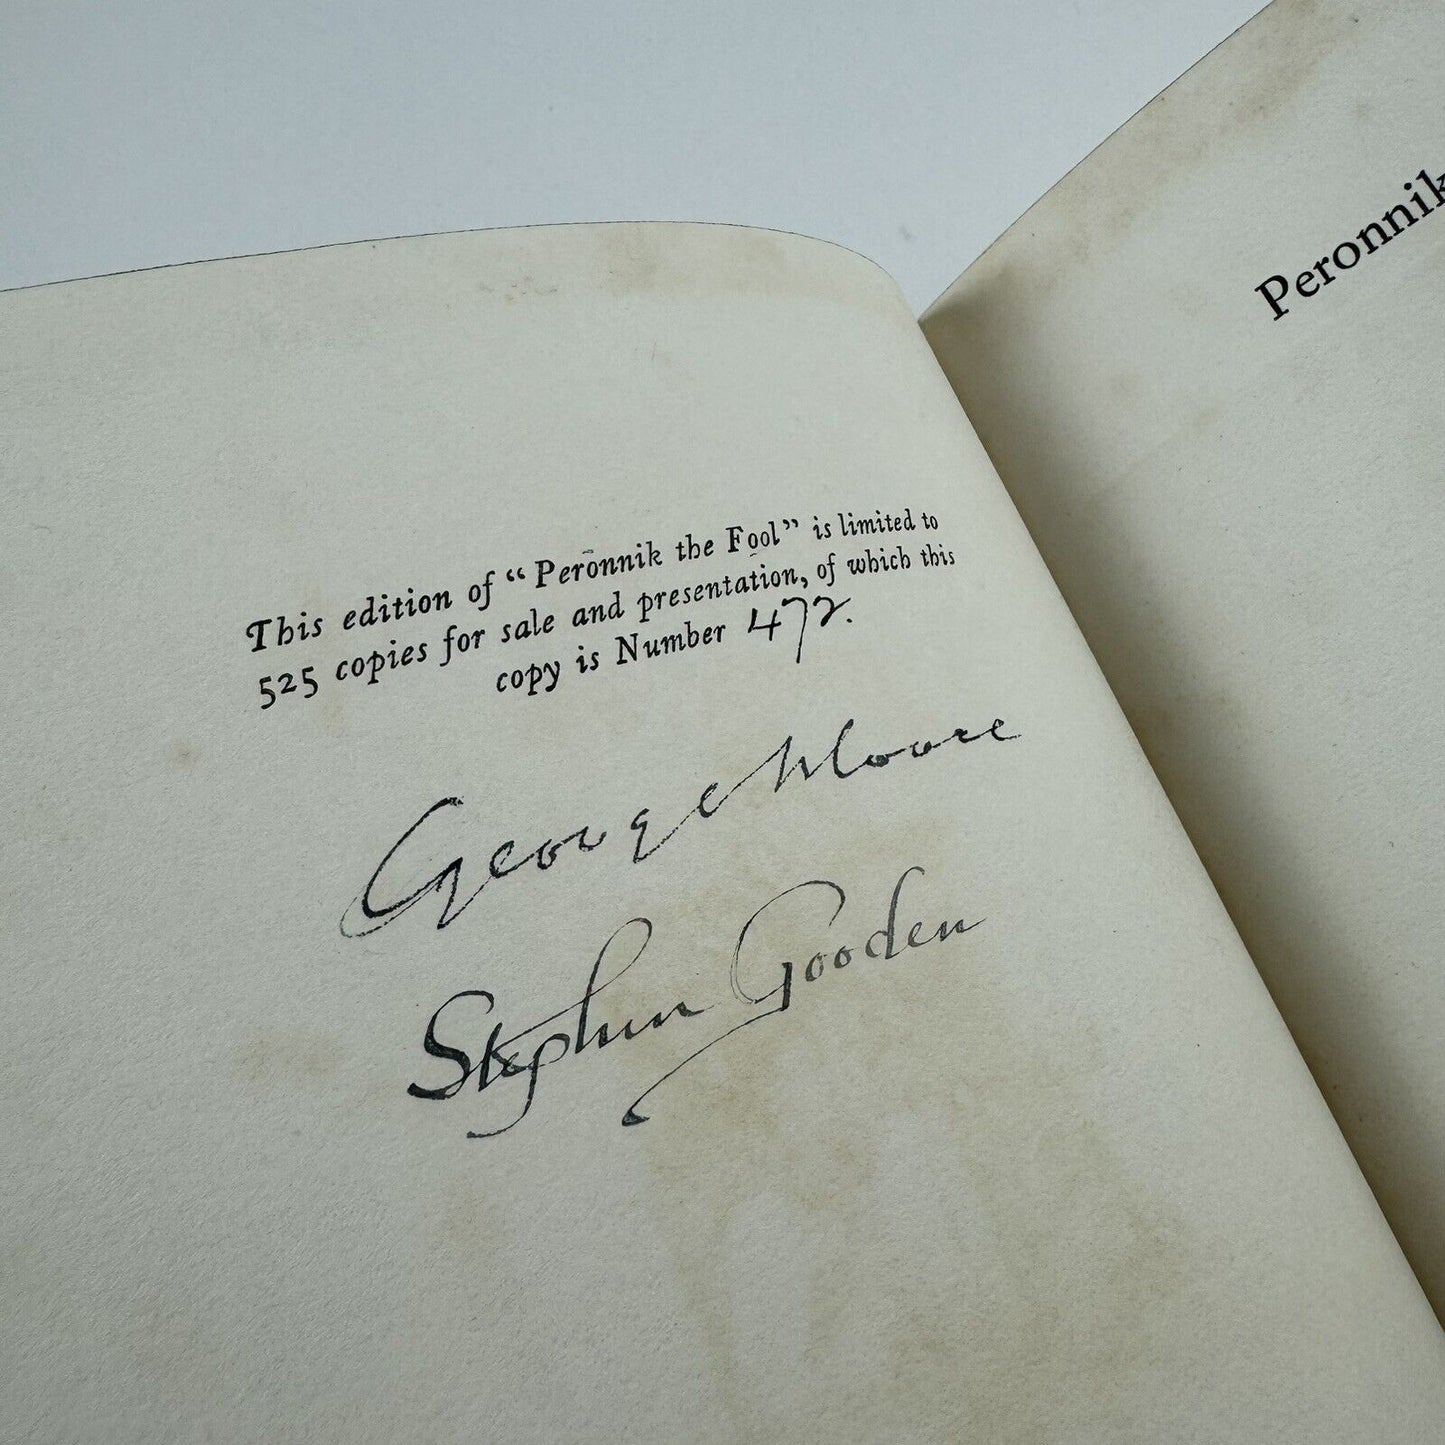 This edition of “Peronnik the Fool” is limited to
525 copies for sale and presentation, of which this
copy is Number 472.
George Moore
Stephen Gooden
Peronnik